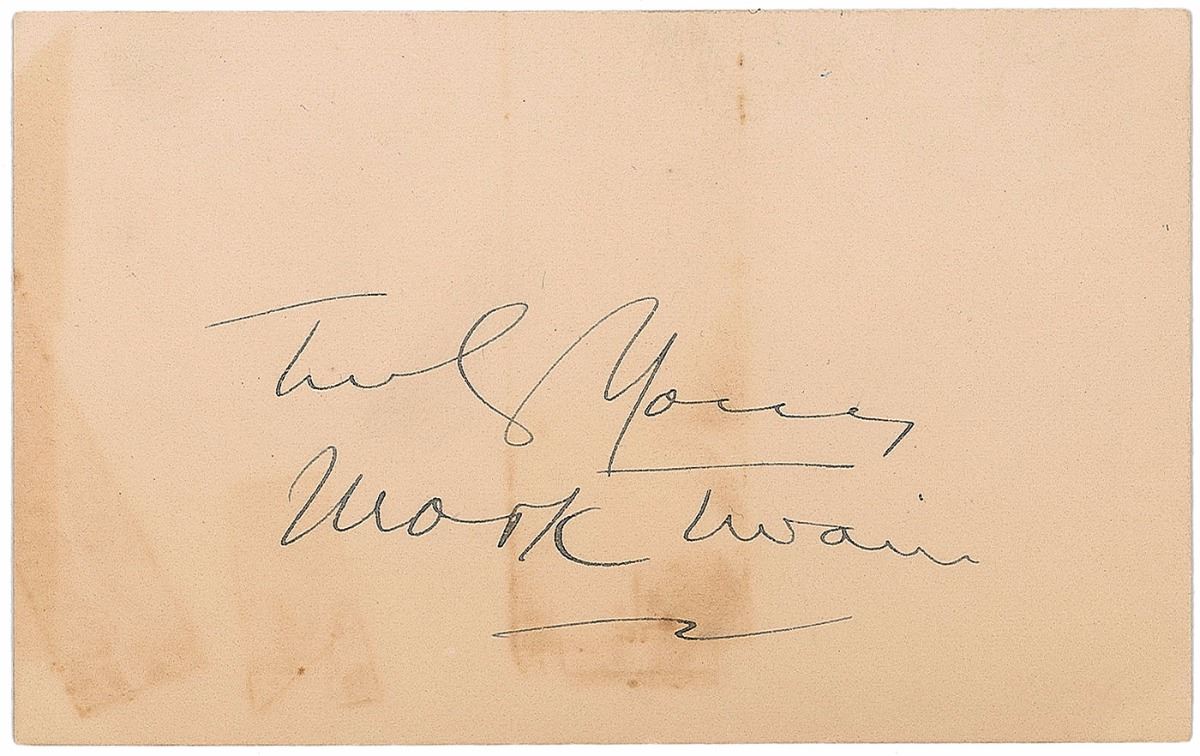 Truly Yours
Mark Twain